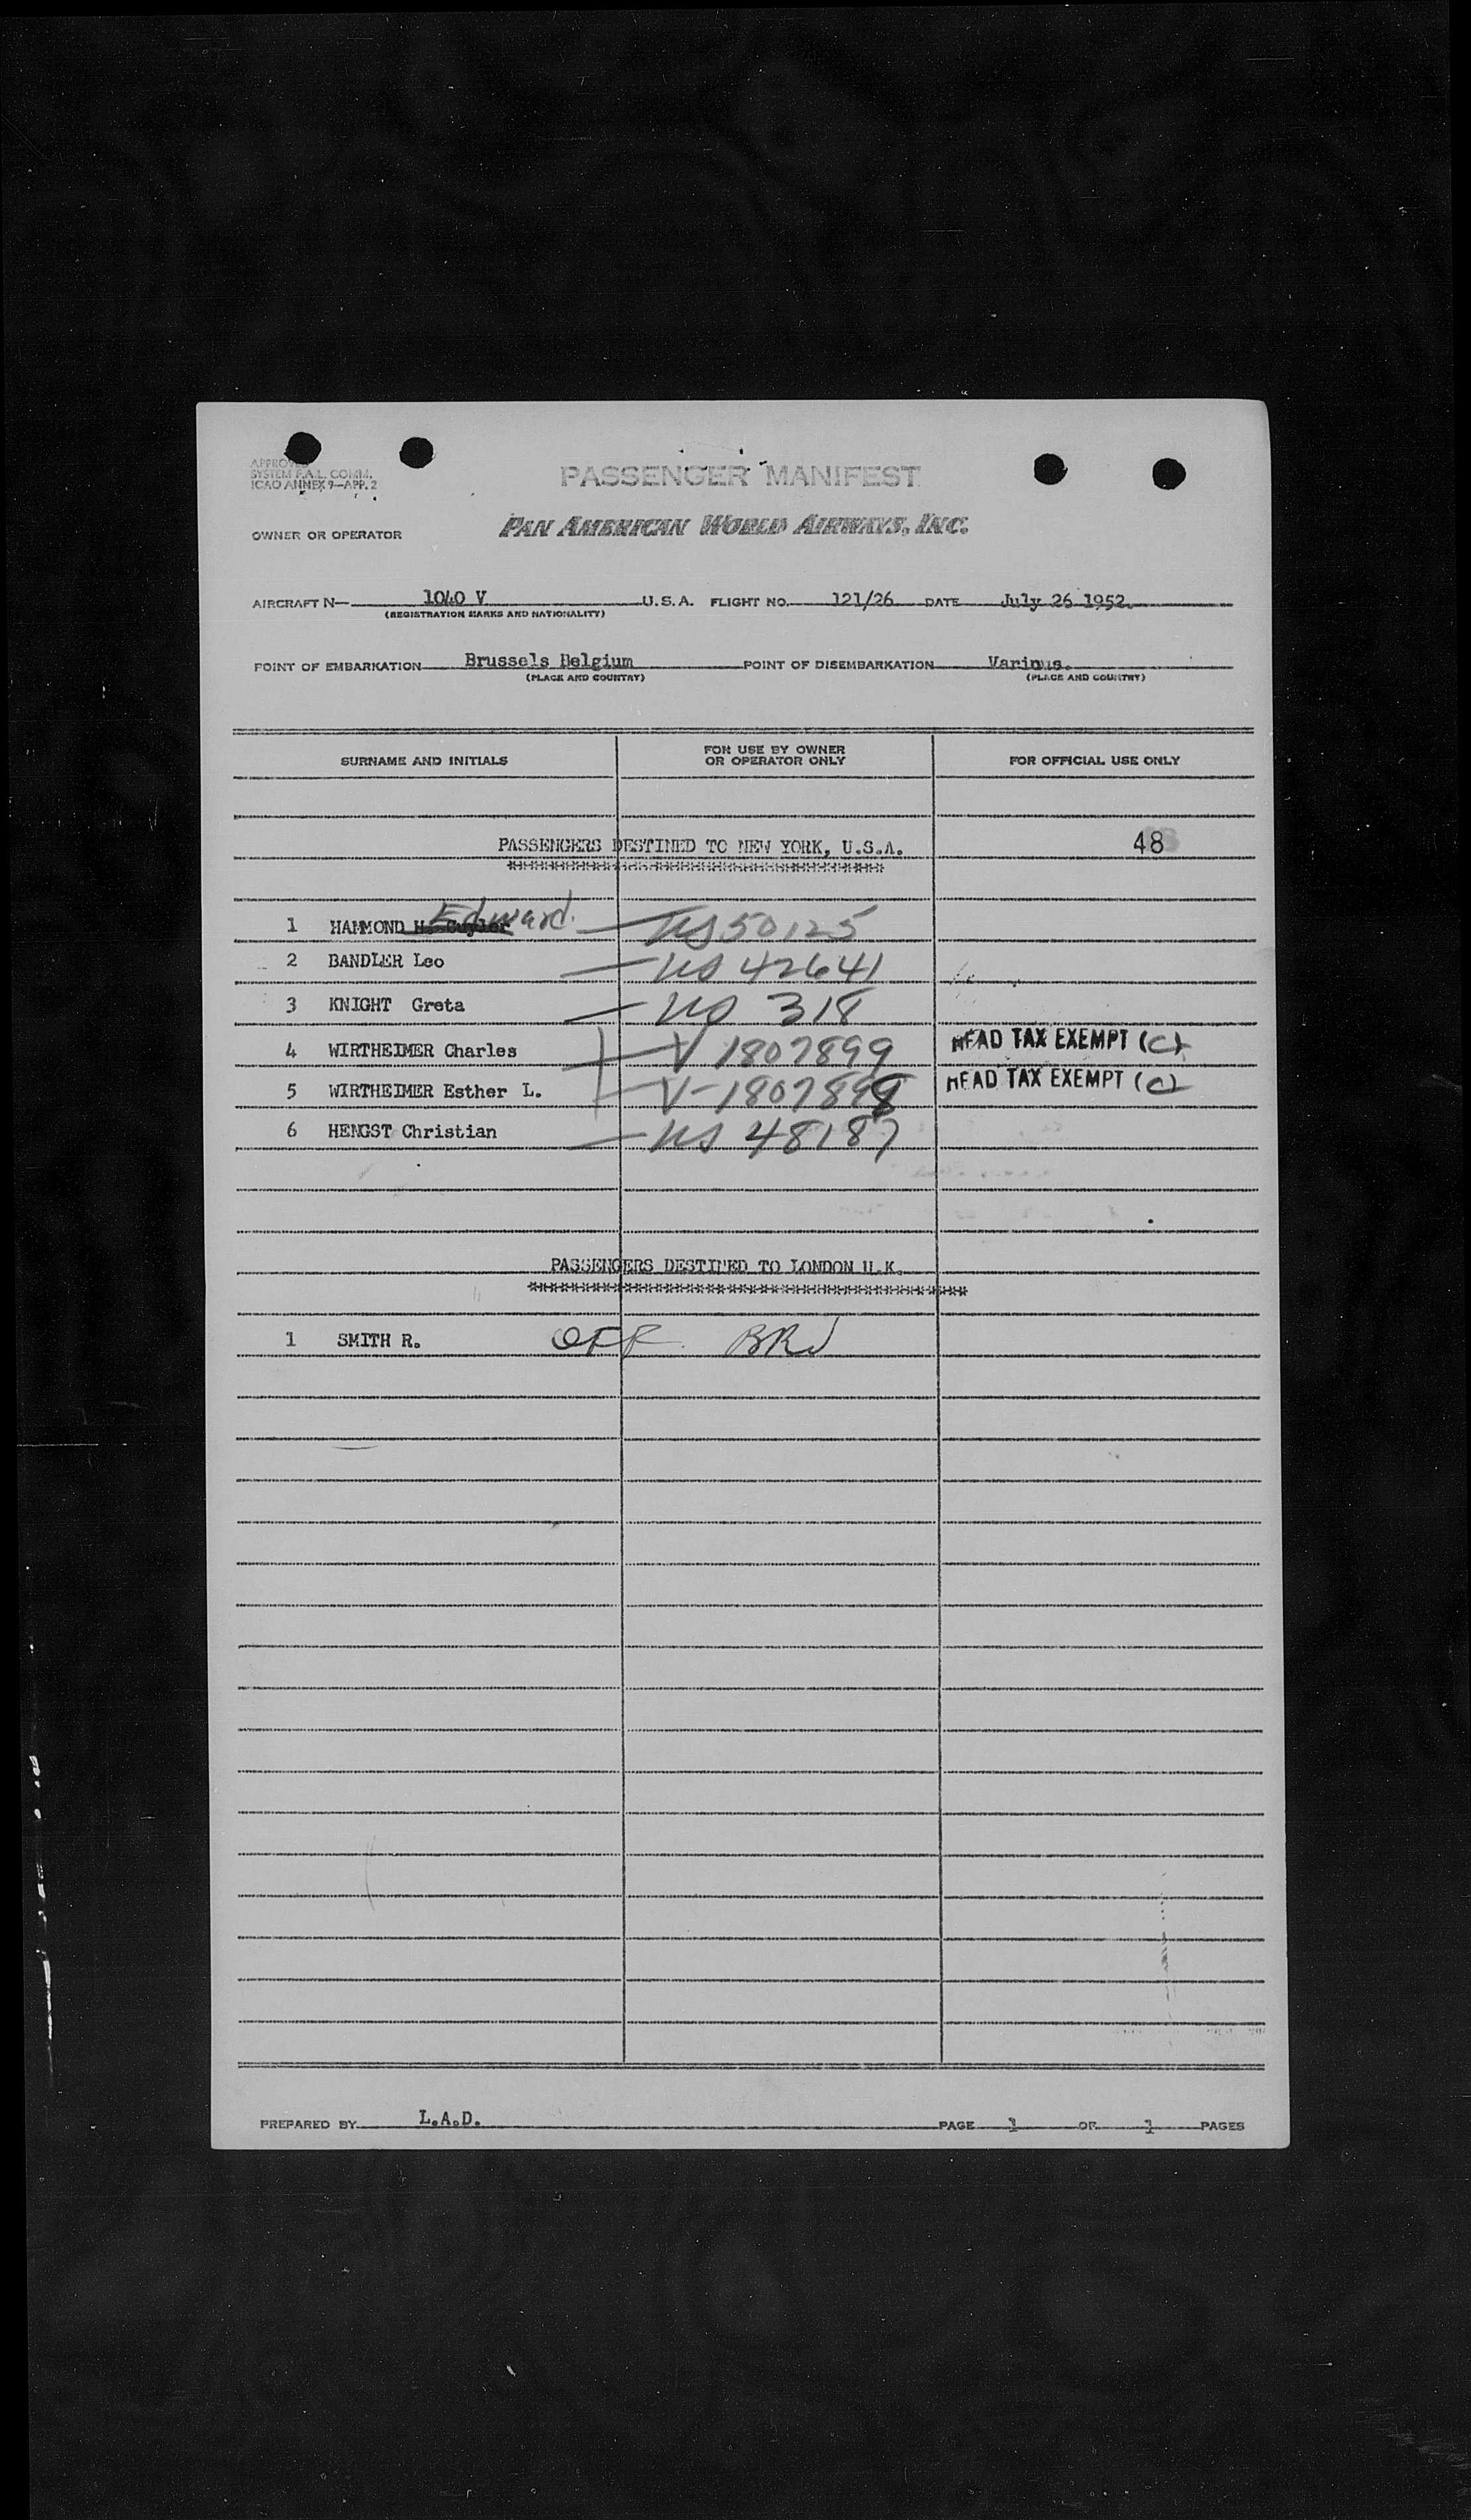 APPROVED
SYSTEM F.A.L. COMM.
ICAO ANNEX 9—APP. 2
PASSENGER MANIFEST
OWNER OR OPERATOR PAN AMERICAN WORLD AIRWAYS, INC.
AIRCRAFT N— 1040 V U.S.A. FLIGHT NO. 121/26 DATE July 26 1952.
(REGISTRATION MARKS AND NATIONALITY)
POINT OF EMBARKATION Brussels Belgium POINT OF DISEMBARKATION Various.
(PLACE AND COUNTRY) (PLACE AND COUNTRY)
SURNAME AND INITIALS FOR USE BY OWNER OR OPERATOR ONLY FOR OFFICIAL USE ONLY
PASSENGERS DESTINED TO NEW YORK, U.S.A. 48
1 HAMMOND H. Cuyler Edward. US 50125
2 BANDLER Leo US 42641
3 KNIGHT Greta US 318
4 WIRTHEIMER Charles V 1807899 HEAD TAX EXEMPT (C)
5 WIRTHEIMER Esther L. V-1807898 HEAD TAX EXEMPT (C)
6 HENGST Christian US 48187
PASSENGERS DESTINED TO LONDON U.K.
1 SMITH R. OFF
PREPARED BY L.A.D. PAGE 1 OF 1 PAGES